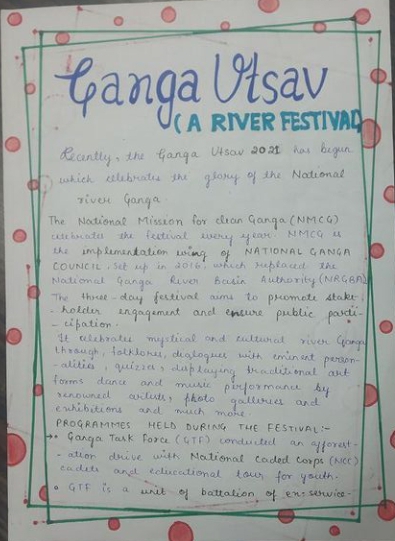 Ganga Utsav
(A RIVER FESTIVAL)
Recently, the Ganga Utsav 2021 has begun
which celebrates the glory of the National
river Ganga.
The National Mission for clean Ganga (NMCG)
celebrate the festival every year. NMCG is
the implementation wing of NATIONAL GANGA
COUNCIL. Set up in 2016, which replaced the
National Ganga River Basin Authority (NRGBA)
The three-day festival aims to promote stake
- holder engagement and ensure public parti
- cipation.
It celebrates mystical and cultural river Ganga
through, folklores, dialogues with eminent person
- alities, quizzes, displaying traditional art
forms dance and music performance by
renowned artists, photo galleries and
exhibitions and much more.
PROGRAMMES HELD DURING THE FESTIVAL:-
→• Ganga Task Force (GTF) conducted an afforest-
- ation drive with National Caded Corps (NCC)
cadets and educational tour for youth.
• GTF is a unit of battation of ex-service-